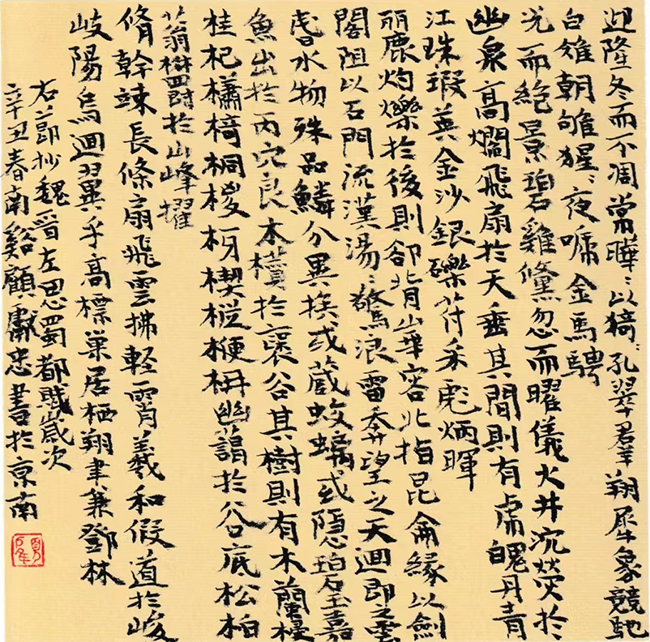 迎隆冬而不凋常曄〻以猗〻孔翠羣翔犀象競馳
白雉朝雊猩〻夜啼金馬騁
光而絶景碧雞儵忽而曜儀火井沉熒於
幽泉高爓飛扇於天垂其間則有虎魄丹青
江珠瑕英金沙銀礫符采彪炳暉
麗灼爍於後則卻背華容北指昆侖緣以劍
閣阻以石門流漢湯〻驚浪雷奔望之天迴即之雲
昏水物殊品鱗介異族或藏蛟螭或隱碧玉嘉
魚出於丙穴良木攢於褒谷其樹則有木蘭梫
桂杞櫹椅桐椶枒楔樅楩枏幽藹於谷底松柏
蓊鬱於山峰擢
脩幹竦長條扇飛雲拂輕霄羲和假道於峻
岐陽烏迴翼乎高標巢居栖翔聿兼鄧林
右節抄魏晉左思蜀都賦歲次
辛丑春南谿顧獻忠書於京南